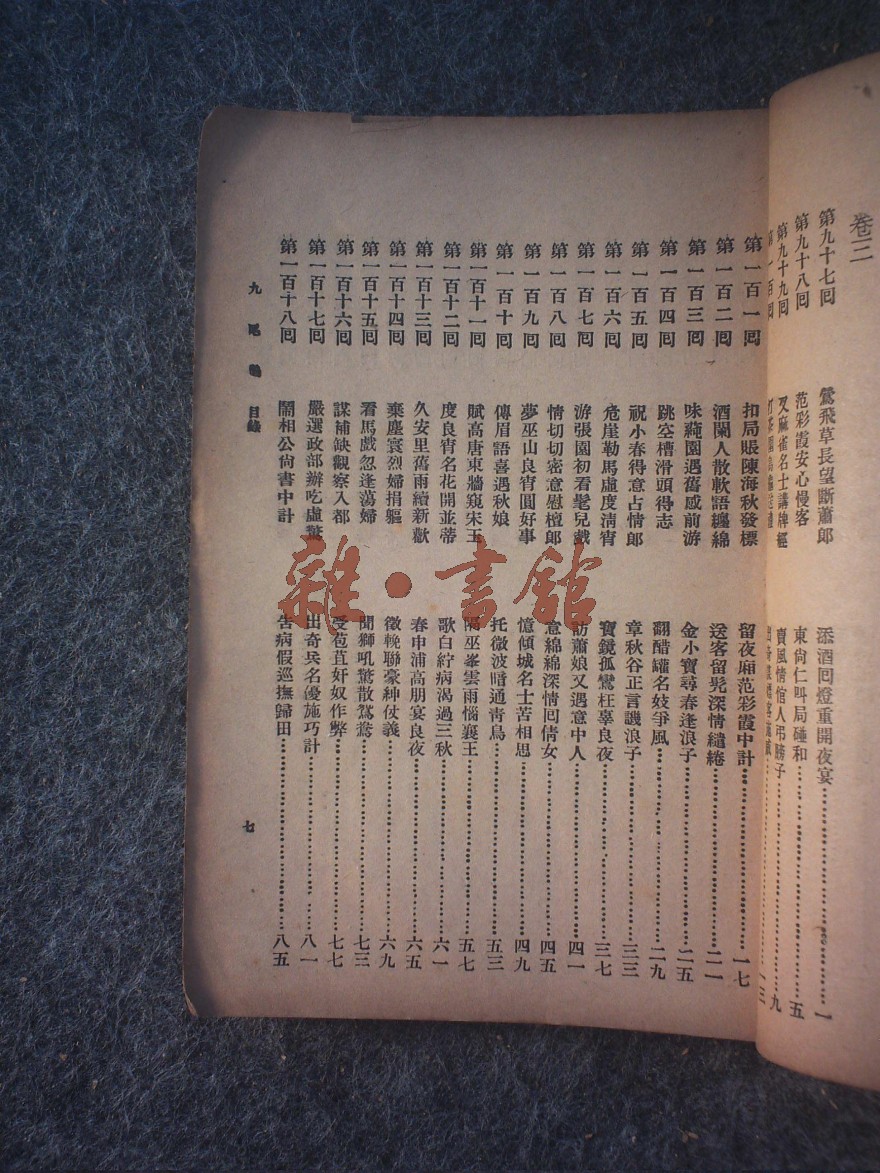 卷三
第九十七囘 鶯飛草長望斷蕭郎 添酒囘燈重開夜宴 一
第九十八囘 范彩霞安心慢客 東尙仁呌局碰和 五
第九十九囘 叉麻雀名士講牌經 賣風情倌人弔膀子 九
第一百囘 一三
第一百一囘 扣局賬陳海秋發標 留夜廂范彩霞中計 一七
第一百二囘 酒闌人散軟語纏綿 送客留髠深情繾綣 二一
第一百三囘 味蒓園遇舊感前游 金小寶尋春逢浪子 二五
第一百四囘 跳空槽滑頭得志 翻醋罐名妓爭風 二九
第一百五囘 祝小春得意占情郎 章秋谷正言譏浪子 三三
第一百六囘 危崖勒馬虛度淸宵 寶鏡孤鸞枉辜良夜 三七
第一百七囘 游張園初看髦兒戲 訪蕭娘又遇意中人 四一
第一百八囘 情切切密意慰檀郎 意綿綿深情囘倩女 四五
第一百九囘 夢巫山良宵圓好事 憶傾城名士苦相思 四九
第一百十囘 傳眉語喜遇秋娘 托微波暗通靑鳥 五三
第一百十一囘 賦高唐東牆窺宋玉 隔巫峯雲雨惱襄王 五七
第一百十二囘 度良宵名花開並蒂 歌白紵病渴過三秋 六一
第一百十三囘 久安里舊雨續新歡 春申浦高朋宴良夜 六五
第一百十四囘 棄塵寰烈婦捐軀 徵輓聯豪紳仗義 六九
第一百十五囘 看馬戲忽逢蕩婦 開獅吼驚散鴛鴦 七三
第一百十六囘 謀補缺觀察入都 受苞苴奸奴作弊 七七
第一百十七囘 嚴選政部辦吃虛驚 出奇兵名優施巧計 八一
第一百十八囘 鬧相公尙書中計 吿病假巡撫歸田 八五
九尾龜 目錄
七
雜·書館